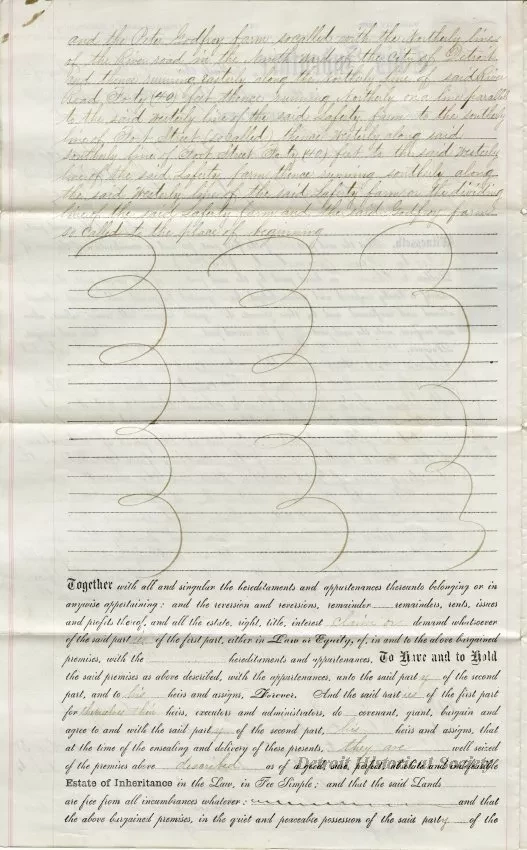 and the Peter Godfroy farm so called with the Northerly line
of the River road in the Ninth ward of the City of Detroit
and thence running easterly along the northerly line of said River
Road, Forty (40) feet thence running Northerly on a line parallel
to the said westerly line of the said Laferty farm to the southerly
line of Fort Street (so called) thence westerly along said
southerly line of Fort Street Forty (40) feet to the said westerly
line of the said Laferty farm thence running southerly along
the said westerly line of the said Laferty farm or the dividing
line of the said Laferty farm and the said Godfroy farm
so called to the place of beginning
Together with all and singular the hereditaments and appurtenances thereunto belonging or in
anywise appertaining: and the reversion and reversions, remainder remainders, rents, issues
and profits thereof, and all the estate, right, title, interest claim or demand whatsoever
of the said part ies of the first part, either in Law or Equity, of, in and to the above bargained
premises, with the hereditaments and appurtenances. To Have and to Hold
the said premises as above described, with the appurtenances, unto the said part y of the second
part, and to his heirs and assigns, Forever. And the said part ies of the first part
for themselves their heirs, executors and administrators, do covenant, grant, bargain and
agree to and with the said party of the second part, his heirs and assigns, that
at the time of the ensealing and delivery of these presents, they are well seized
of the premises above described as of a good, sure, perfect, absolute and indefeasible
Detroit Historical Society
Estate of Inheritance in the Law, in Fee Simple; and that the said Lands
are free from all incumbrances whatever: and that
the above bargained premises, in the quiet and peaceable possession of the said party of the